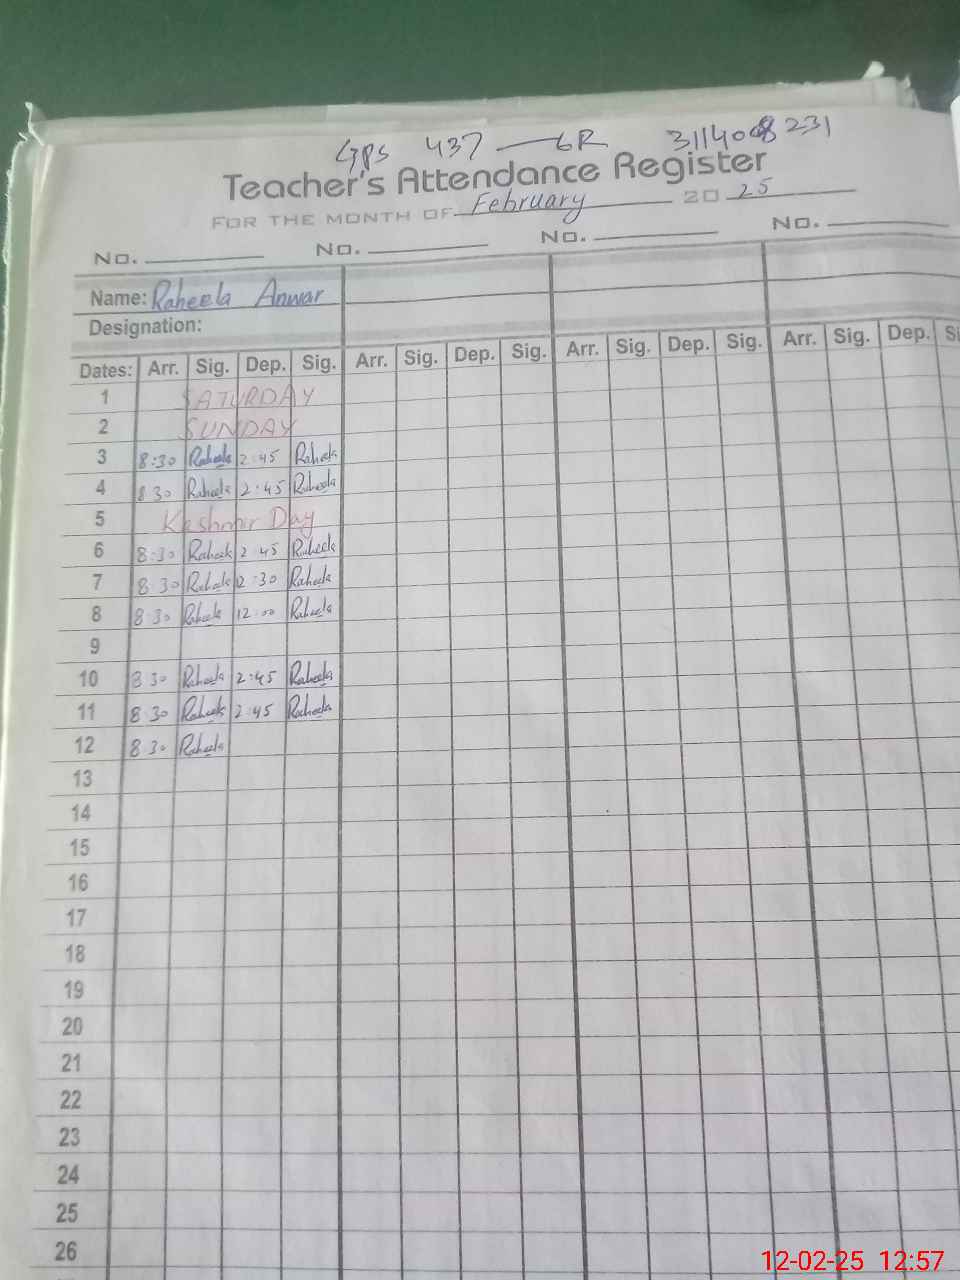 GPS 437 — 6R 31140 8231
Teacher's Attendance Register
FOR THE MONTH OF February 20 25
No. No. No. No.
Name: Raheela Anwar
Designation:
Dates: Arr. Sig. Dep. Sig. Arr. Sig. Dep. Sig. Arr. Sig. Dep. Sig. Arr. Sig. Dep. Si
1 SATURDAY
2 SUNDAY
3 8:30 Raheela 2:45 Raheela
4 8 30 Raheela 2:45 Raheela
5 Kashmir Day
6 8:30 Raheela 2:45 Raheela
7 8:30 Raheela 12:30 Raheela
8 8:30 Raheela 12:00 Raheela
9
10 8 30 Raheela 2:45 Raheela
11 8:30 Raheela 2:45 Raheela
12 8:30 Raheela
13
14
15
16
17
18
19
20
21
22
23
24
25
26
12-02-25 12:57